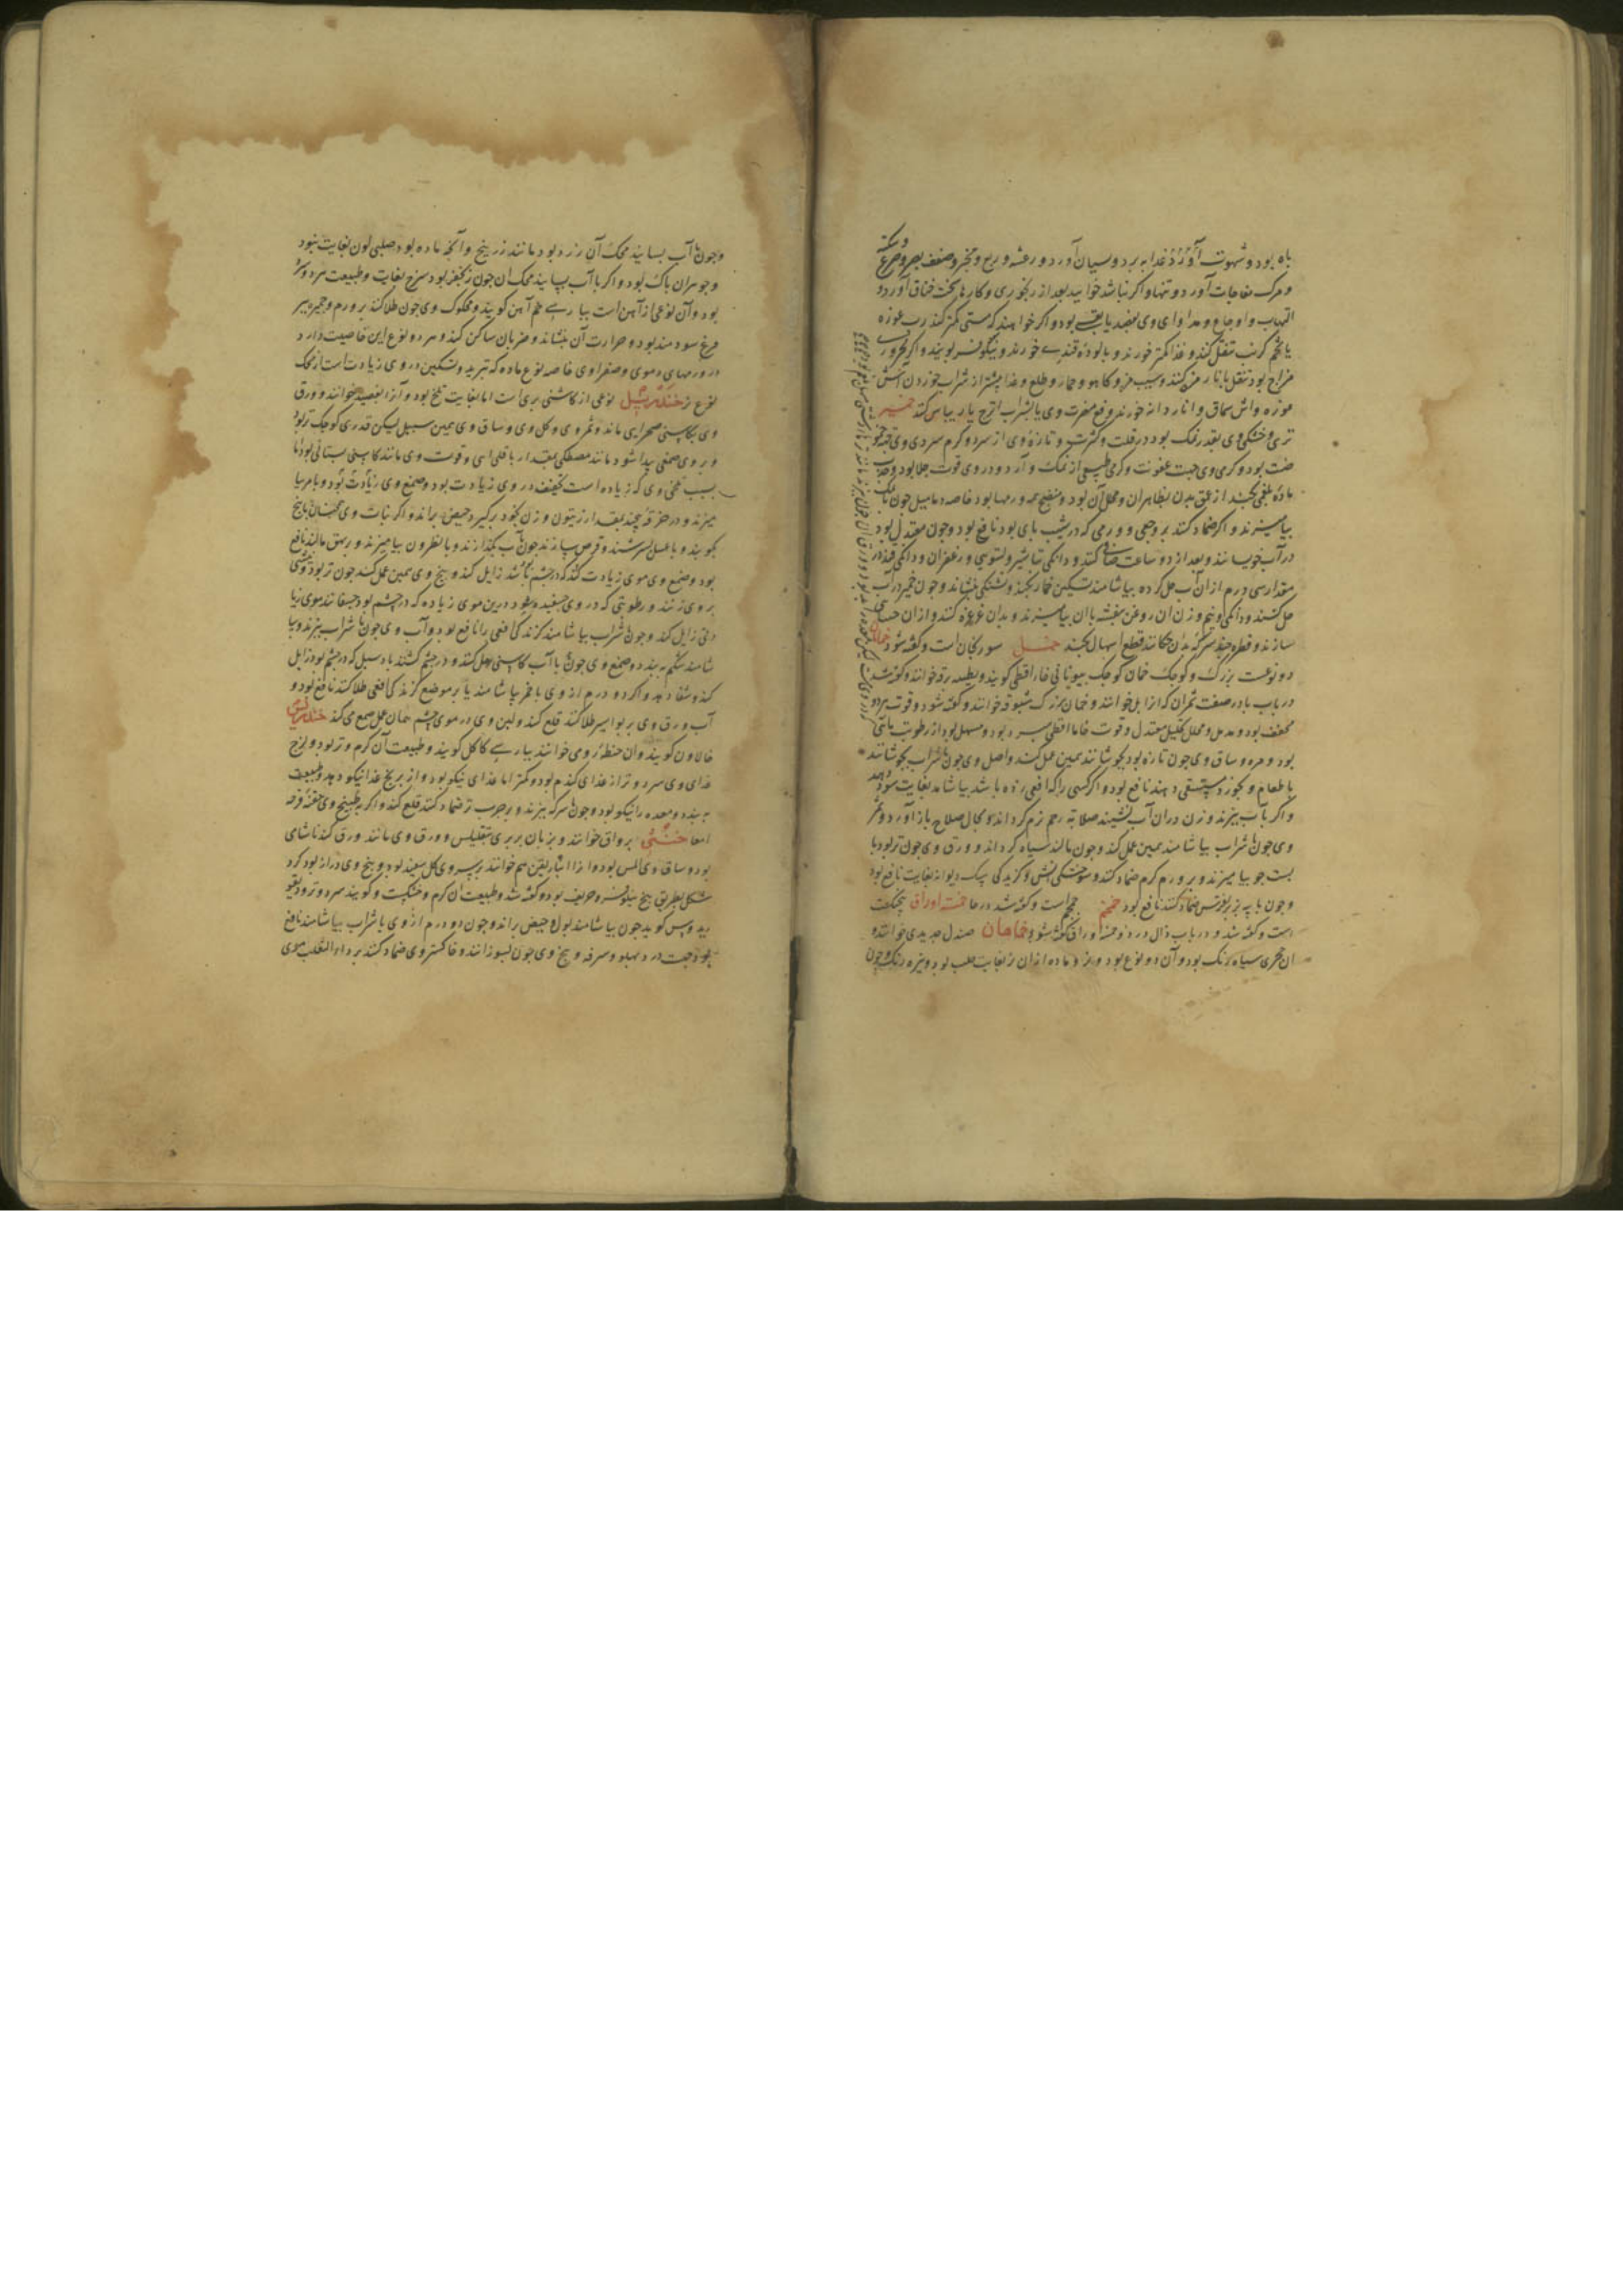 باه بود و شهوت آورد و غذا به برد و نسیان آورد و رعشه و ربع و بخر و ضعف بصر و صرع و سکته
و مرک مفاجات آورد و تنها و اکر نباشد خوابید بعد از رنجوری و کارها سخت خناق آورد و
التهاب و اوجاع و مداوای وی بفصد یا بقی بود و اکر خواهند که مستی کمتر کند رب غوره
یا تخم کرنب تنقل کنند و غذا کمتر خورند و پالوده قندی خورند و نیلوفر بویند و اکر محرور
مزاج بود تنقل با نار مز کنند و سیب مز و کاهو و خمار و طلع و غذا پیشتر از شراب خوردن آش
غوره و اش سماق و انار دانه خورند و دفع مضرت وی یا بشراب اترج یا ریباس کنند خمیر
تری و خشکی وی بقدر نمک بود در قلت و کثرت و تازه وی از سرد و کرم سردی وی جهت
ضت بود و کرمی وی جهت عفونت و کرمی طبیعی از نمک و آرد و در وی قوت جلا بود و جذب
ماده بلغمی کند از عمق بدن بظاهر آن و محلل آن بود و منضج همه ورمها بود خاصه دمامیل چون با نمک
بیامیزند و اکر ضماد کنند بر وجعی و ورمی که در شیب پای بود نافع بود و چون معتدل بود
در آب خویسانند و بعد از دو ساعت صافی کنند و دانکی تباشیر و زعفران و دانکی قند در
مقدار سی درم از آن آب حل کرده بیاشامند تسکین خمار بکند و تشنکی بنشاند و چون خمیر در آب
حل کنند و دانکی و نیم وزن آن روغن بنفشه با آن بیامیزند و بدان غرغره کنند و ازان حسای
سازند و قطره چند سرکه بدان چکانند قطع اسهال بکند خمل سورنجان است و کفته شود خمان
دو نوعست بزرک و کوچک خمان کوچک بیونانی خاما اقطی کویند و بطیسه رقه خوانند و کفته شد
در باب با در صفت شمران که ازا بل خوانند و خمان بزرک شبوقه خوانند و کفته شود و قوت هر دو
مجفف بود و مدمل و محلل تحلیل معتدل و قوت خاما اقطی سرد بود و مسهل بود از رطوبت مائی
بود و مره و ساق وی چون تازه بود بجوشانند همین عمل کند و اصل وی چون با شراب بجوشانند
با طعام و بخورد مستسقی دهند نافع بود و اکر کسی را که افعی زده باشد بیاشامد بغایت سود دهد
و اکر با آب بپزند و زن در ان آب نشیند صلابه رحم نرم کرداند و بحال صلاح باز آورد و ثمر
وی چون با شراب بیاشامند همین عمل کند و چون بمالند سیاه کرداند و ورق وی چون تر بود با
پست جو بیامیزند و بر ورم کرم ضماد کنند و سوختکی آتش و کزیدکی سک دیوانه بغایت نافع بود
و چون با پیه بز بر نقرس ضماد کنند نافع بود خمخم حمحم است و کفته شد در حا خمسه اوراق پنجنکشت
است و کفته شد و در باب ذال در ذو خمسه اوراق کفته شود خماهان صندل حدیدی خوانند و
ان حجری سیاه رنک بود و آن دو نوع بود و نر و ماده ازان نر بغایت صلب بود و تیره رنک و چون
و چون با آب بسایند محک آن زرد بود مانند زرنیخ و آنچه ماده بود صلبی لون بغایت نبود
و جوهر آن پاک بود و اکر با آب بسایند محک آن چون زنجفر بود سرخ بغایت و طبیعت سرد و
بود و آن نوعی از آهن است پیارسی خم آهن کویند و محکوک وی چون طلا کنند بر ورم و حمره سر
مریخ سودمند بود و حرارت آن بنشاند و ضربان ساکن کند و هر دو نوع این خاصیت دارد
در ورمهای دموی و صفراوی خاصه نوع ماده که تبرید و تسکین در وی زیادتست از محک
نوع نر خندریلی نوعی از کاسنی بری است اما بغایت تلخ بود و آنرا یعضید خوانند و ورق
وی بکاسنی صحرایی ماند و ثمر وی و کل وی و ساق وی همین سبیل لیکن قدری کوچک تر بود
و بر وی صمغی پیدا شود مانند مصطکی بمقدار باقلی اى و قوت وی مانند کاسنی بستانی بود اما
بسبب تلخی وی که زیاده است تجفیف در وی زیادت بود و صمغ وی زیادت بود و با مر بیا
میزند و در خرقه پیچند بمقدار زیتون و زن بخود برکیرد حیض براند و اکر نبات وی همچنان با بیخ
بکوبند و با عسل بسرشند و قرص سازند چون با آب بکدازند و با نطرون بیامیزند و بر بهق مالند نافع
بود و صمغ وی موی زیادت کند که در چشم باشد زایل کند و بیخ وی همین عمل کند چون تر بود و
بر وی زنند و رطوبتی که در وی چسفیده بود در بن موی زیاده که در چشم بود چسفانند موی زیا
دتی زایل کند و چون با شراب بیاشامند کزندکی افعی را نافع بود و آب وی چون با شراب بپزند و بیا
شامند شکم به بندد و صمغ وی چون با آب کاسنی حل کنند و در چشم کشند باد سبل که در چشم بود زایل
کند و شفا دهد و اکر دو درم از وی با خمر بیاشامند یا بر موضع کزندکی افعی طلا کنند نافع بود و
آب ورق وی بر بواسیر طلا کنند قلع کند و لبن وی در موی چشم همان عمل صمغ می کند خندروس
خالاون کویند و ان حنطه رومی خوانند پیارسی کاکل کویند و طبیعت آن کرم و تر بود و لزج
غذای وی سرد و تر از غذای کندم بود و کمتر اما غذای نیکو بود و از برنج غذا نیکو دهد و طبیعت
به بندد و معده را نیکو بود و چون با سرکه بپزند و بر جرب تر ضماد کنند قلع کند و اکر بطبیخ وی حقنه قرحه
امعا خنثی برواق خوانند و بزبان بربری تیقلیس و ورق وی مانند ورق کندنا شامی
بود و ساق وی املس بود و ازا انثاریقن هم خوانند بر سر وی کل سفید بود و بیخ وی دراز بود کرد
شکل بطریق بیخ نیلوفر و حریف بود و کفته شد و طبیعت آن کرم و خشکست و کویند سرد و تر و دیسقو
ریدوس کوید چون بیاشامند بول و حیض براند و چون دو درم از وی با شراب بیاشامند نافع
بود جهت درد پهلو و سرفه و بیخ وی چون بسوزانند و خاکستر وی ضماد کنند بر داء الثعلب موی